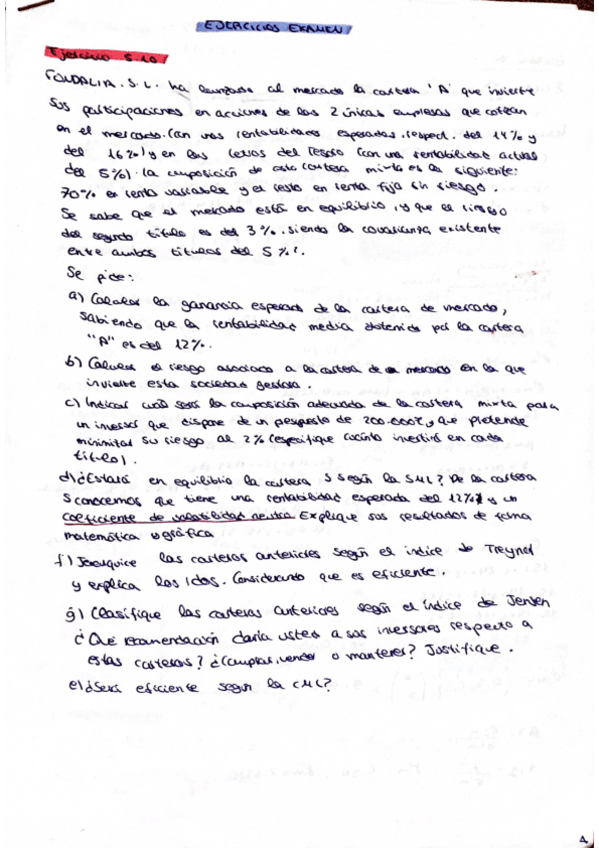 EJERCICIOS EXAMEN
Ejercicio 5.10
FONDALIA. S.L. ha lanzado al mercado la cartera 'A' que invierte
sus participaciones en acciones de las 2 únicas empresas que cotizan
en el mercado. (con unas rentabilidades esperadas, respect. del 14% y
del 16%) y en las letras del Tesoro (con una rentabilidad actual
del 5%). La composición de esta cartera mixta es la siguiente:
70% en renta variable y el resto en renta fija sin riesgo.
Se sabe que el mercado está en equilibrio, y que el riesgo
del segundo título es del 3%, siendo la covarianza existente
entre ambos títulos del 5%².
Se pide:
a) Calcular la ganancia esperada de la cartera de mercado,
sabiendo que la rentabilidad media obtenida por la cartera
"A" es del 12%.
b) Calcular el riesgo asociado a la cartera de mercado en la que
invierte esta sociedad gestora.
c) Indicar cuál será la composición adecuada de la cartera mixta para
un inversor que dispone de un presupuesto de 200.000€, y que pretende
minimizar su riesgo al 2% (especifique cuánto invertirá en cada
título).
d) ¿Estará en equilibrio la cartera S según la SML? De la cartera
S conocemos que tiene una rentabilidad esperada del 12% y un
coeficiente de volatilidad neutra. Explique sus resultados de forma
matemática y gráfica
f) Jerarquice las carteras anteriores según el índice de Treynor
y explica los ldos. Considerando que es eficiente.
g) Clasifique las carteras anteriores según el índice de Jensen
¿Qué recomendación daría usted a sus inversores respecto a
estas carteras? ¿Comprar, vender o mantener? Justifique.
e) ¿Será eficiente según la CML?